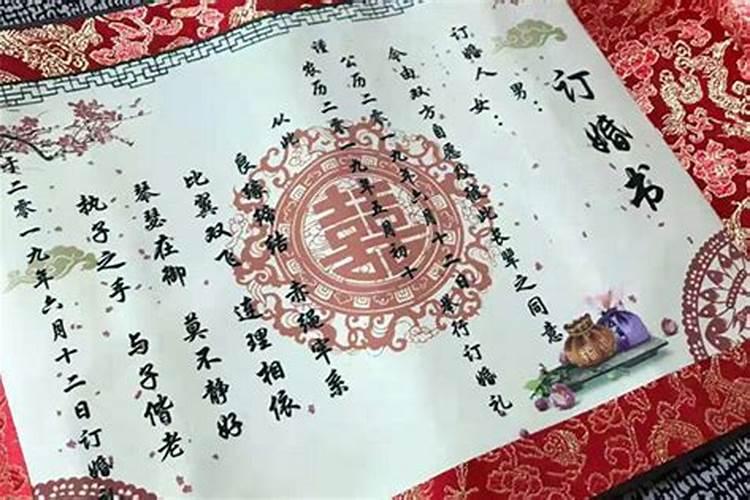 订婚书
男：
订婚人
女：
今由双方自愿及彼此长辈之同意
公历二零一九年六月十二日举行订婚礼
谨农历二零一九年五月初十
从此 赤绳牢系
良缘缔结 连理相依
比翼双飞 莫不静好
琴瑟在御 与子偕老
执子之手
于二零一九年六月十二日订婚